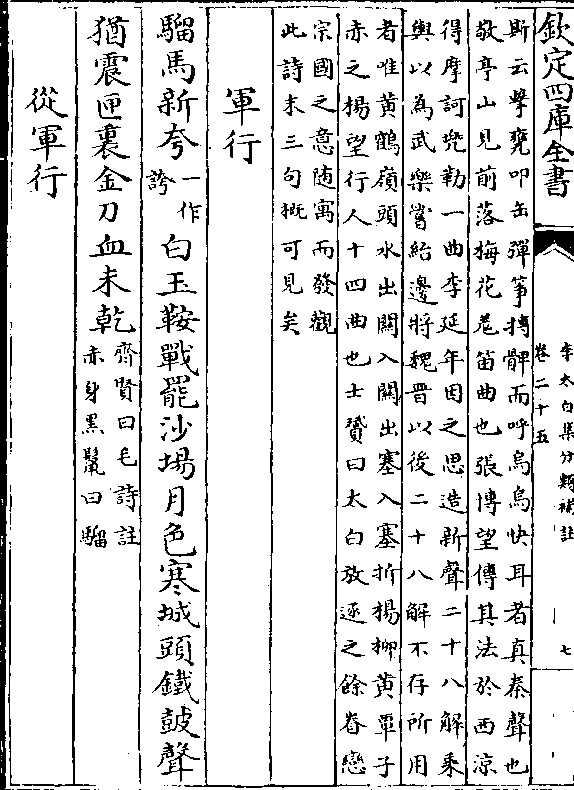 欽定四庫全書
李太白集分類補註
卷二十五
七
斯云擊甕叩缶彈箏搏髀而呼烏烏快耳者真秦聲也
敬亭山見前落梅花差笛曲也張博望傳其法於西涼
得摩訶兜勒一曲李延年因之思造新聲二十八解乘
輿以為武樂嘗給邊將魏晉以後二十八解不存所用
者唯黃鶴嶺頭水出關入關出塞入塞折楊柳黃覃子
赤之楊望行人十四曲也士贇曰太白放逐之餘眷戀
宗國之意随寓而發觀
此詩末三句概可見矣
軍行
騮馬新夸一作誇白玉鞍戰罷沙塲月色寒城頭鐵鼓聲
猶震匣裏金刀血未乾齊賢曰毛詩註赤身黒鬛曰騮
從軍行